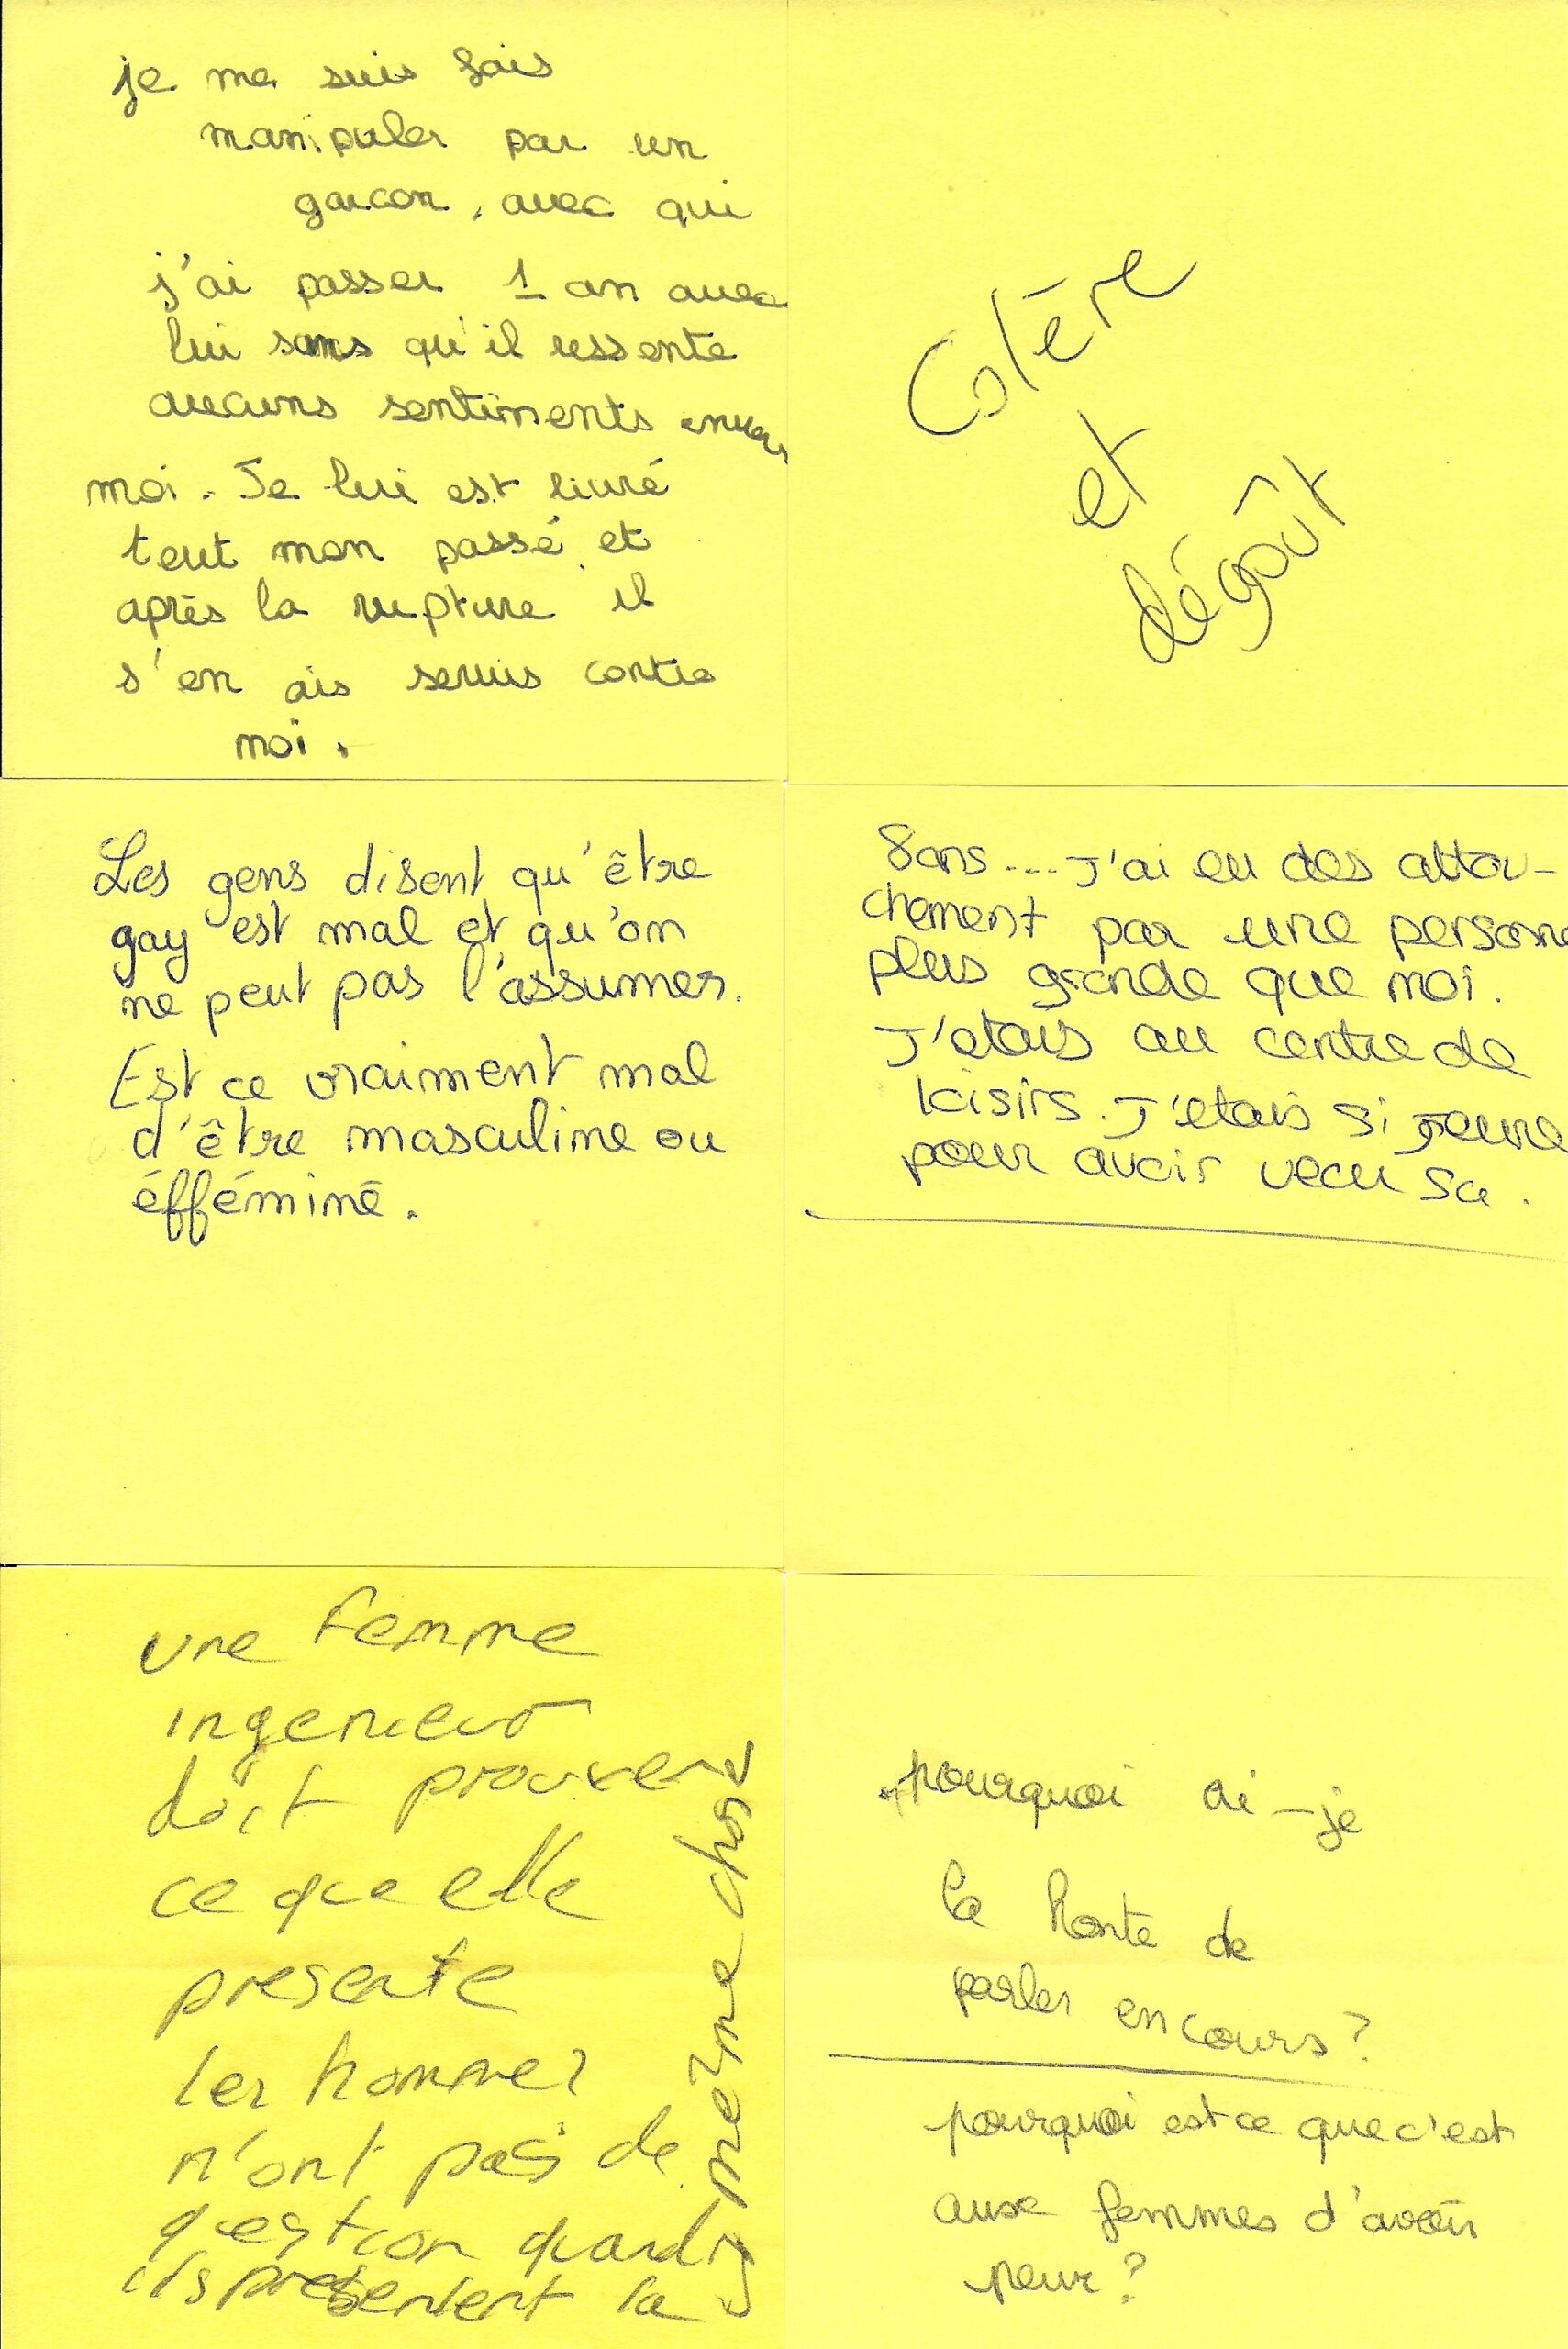 je me suis fais
manipuler par un
garcon, avec qui
j'ai passer 1 an avec
lui sans qu'il ressente
aucuns sentiments envers
moi. Je lui est livré
tout mon passé et
après la rupture il
s'en ais servis contre
moi.
Colère
et
dégoût
Les gens disent qu'être
gay est mal et qu'on
ne peut pas l'assumer.
Est ce vraiment mal
d'être masculine ou
éfféminé.
8ans.... J'ai eu des attou-
chement par une personne
plus grande que moi.
J'etais au centre de
loisirs. J'etais si jeune
pour avoir vecu sa.
une femme
ingenieur
doit prouver
ce que elle
presente
les hommes
n'ont pas de
question quand
ils presentent la
même chose
pourquoi ai-je
la honte de
parler en cours?
pourquoi est ce que c'est
aux femmes d'avoir
peur?